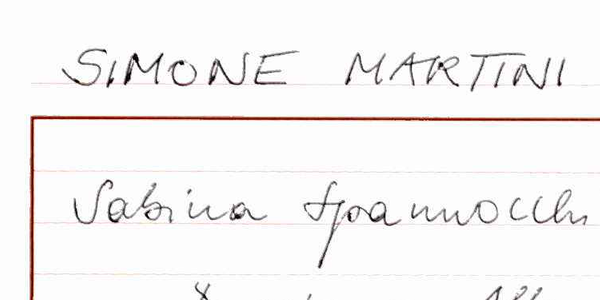 SIMONE MARTINI
Sabina Spannocchi